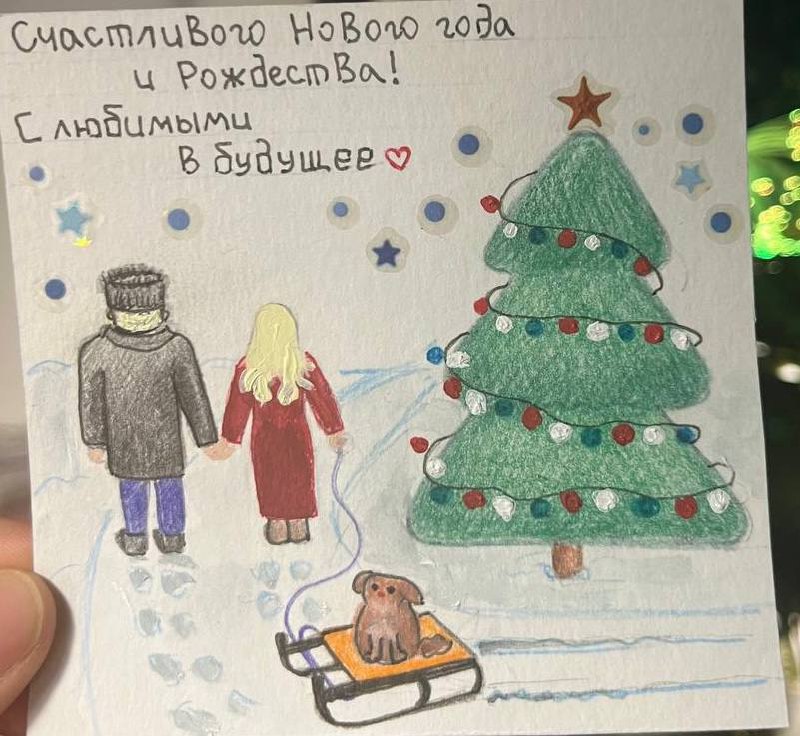 Счастливого Нового года
и Рождества!
С любимыми
в будущее